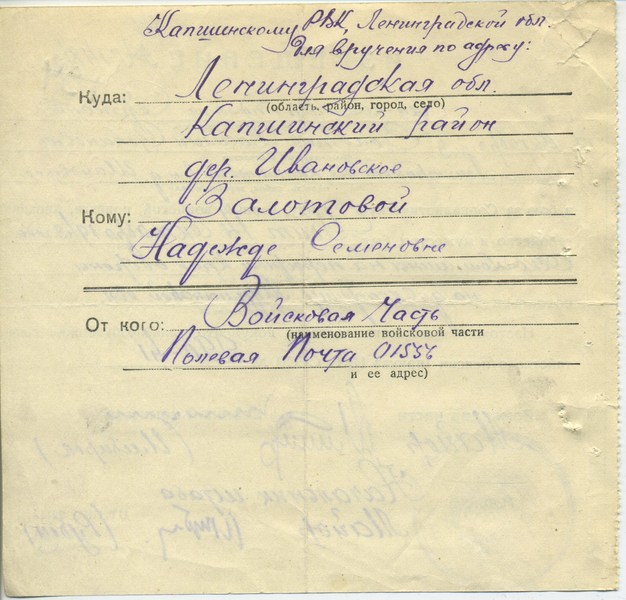 Капшинскому РВК, Ленинградской обл.
Для вручения по адресу:
Куда: Ленинградская обл.
(область, район, город, село)
Капшинский район
дер. Ивановское
Кому: Залотовой
Надежде Семеновне
От кого: Войсковая Часть
(наименование войсковой части
Полевая Почта 01556
и ее адрес)